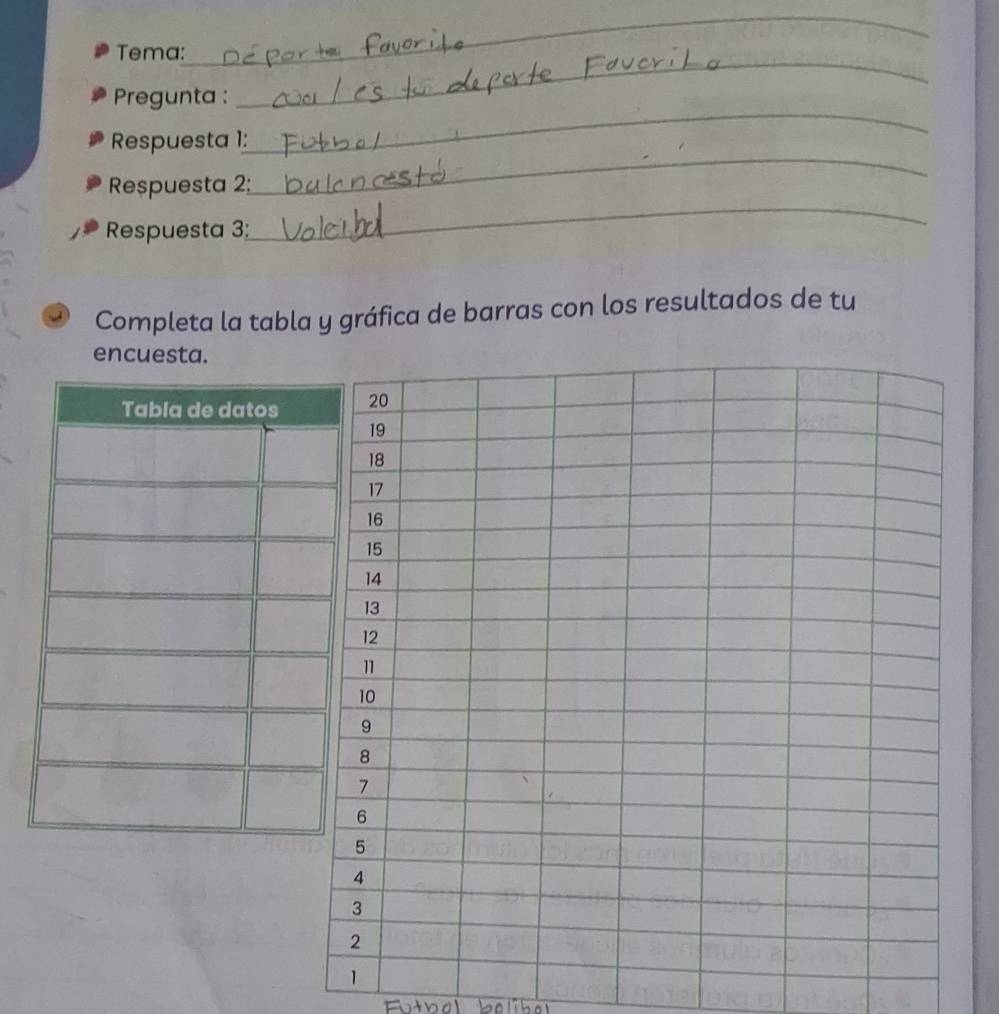 Tema: Deporte favorito
Pregunta : cual es tu deporte Favorito
Respuesta 1: Futbol
Respuesta 2: balancesto
Respuesta 3: Voleibol
Completa la tabla y gráfica de barras con los resultados de tu
encuesta.
Tabla de datos
20
19
18
17
16
15
14
13
12
11
10
9
8
7
6
5
4
3
2
1
Futbol bolibol